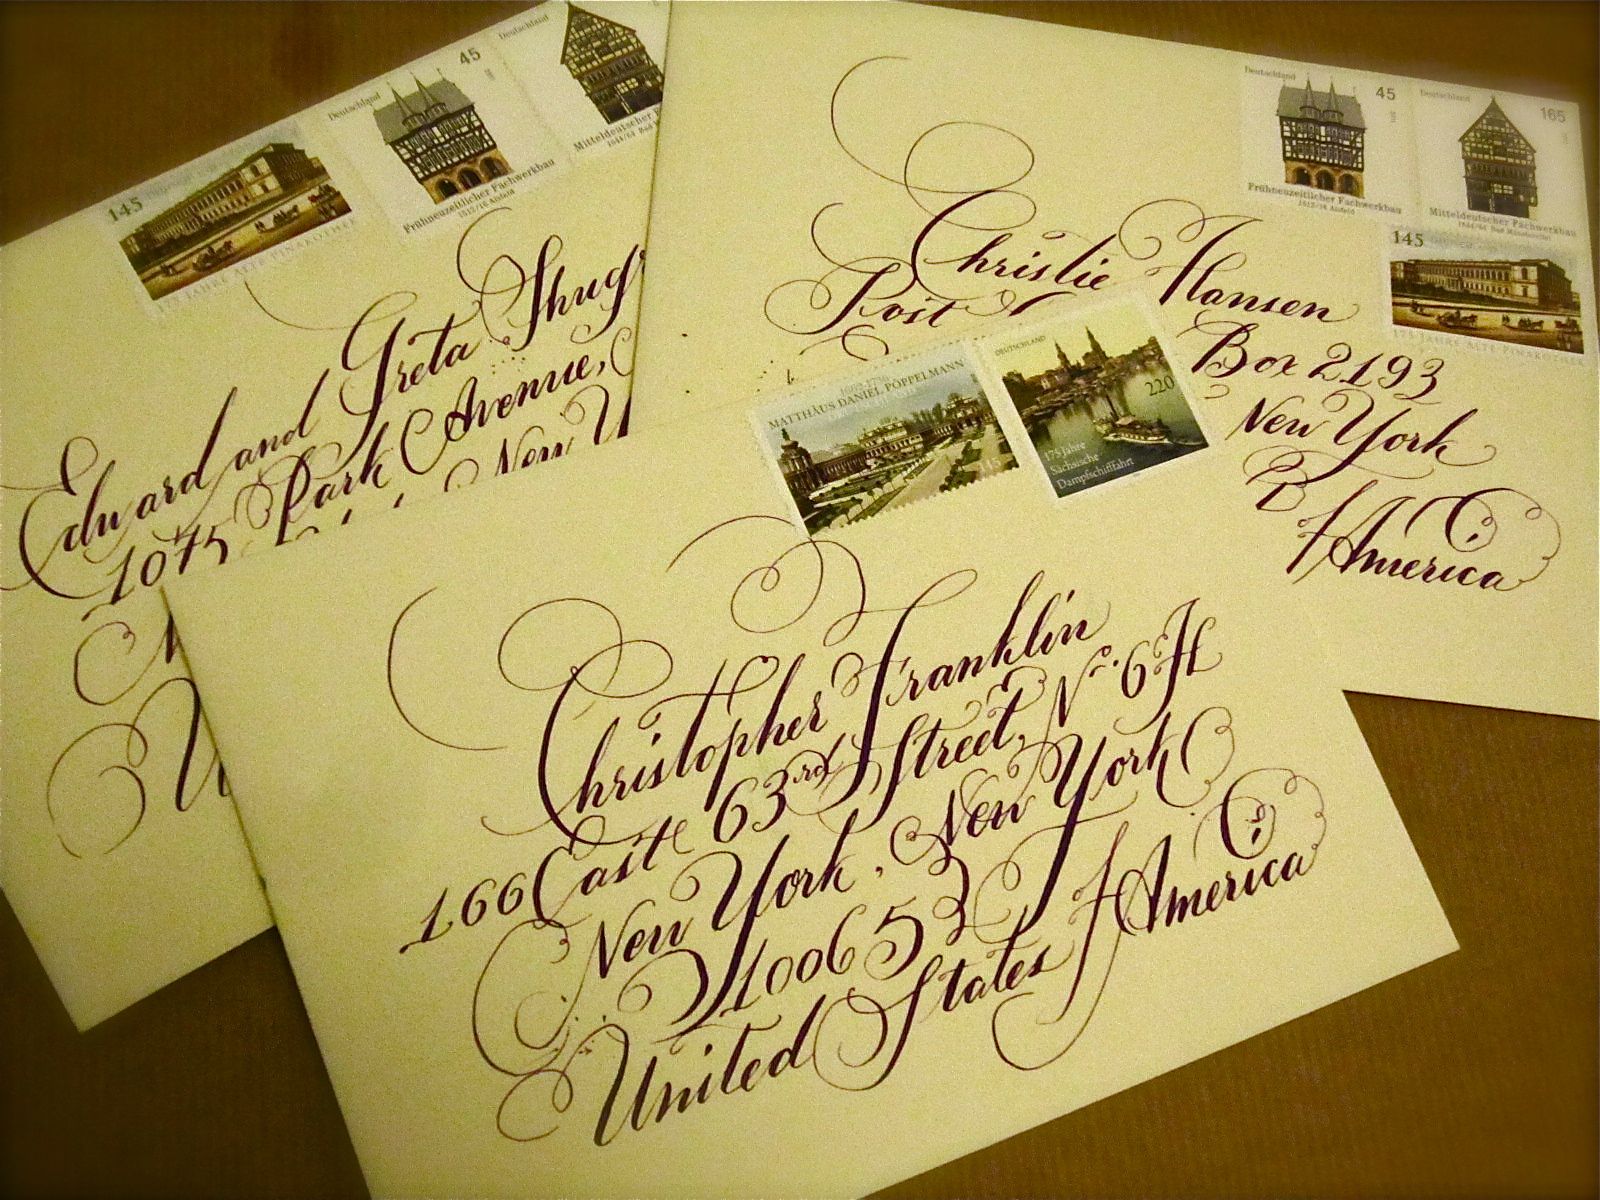 145
75 JAHRE ALTE PINAKOTHEK
Deutschland
45
Frühneuzeitlicher Fachwerkbau
1512/16 Alsfeld
Deutschland
Mitteldeutscher F
Edward and Greta Shug
1075 Park Avenue,
New
Deutschland
45
Frühneuzeitlicher Fachwerkbau
1512/16 Alsfeld
Deutschland
165
Mitteldeutscher Fachwerkbau
145
JAHRE ALTE PINAKOTHEK
Christie Hansen
Post
Box 2193
New York
America
MATTHÄUS DANIEL PÖPPELMANN
DEUTSCHLAND
220
175 Jahre
Sächsische
Dampfschifffahrt
Christopher Franklin
166 East 63rd Street, No. 6H
New York, New York
10065
United States of America